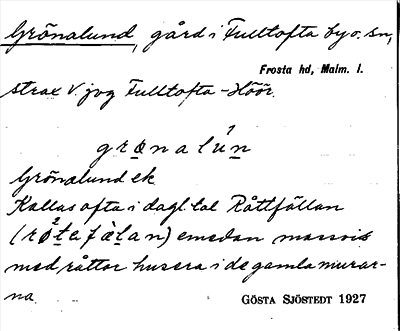 Grönalund, gård i Fulltofta by o. sn,
Frosta hd, Malm. l.
strax V. jvg Fulltofta-Höör.
grønalún
Grönalund ek
Kallas ofta i dagl. tal Råttfällan
(røtafælan) emedan massvis
med råttor husera i de gamla murar-
na.
GÖSTA SJÖSTEDT 1927